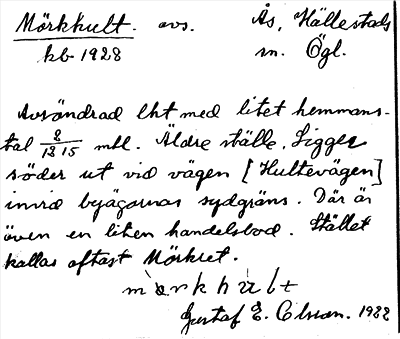 Mörkhult. avs. Ås, Hällestads
kb 1928 sn. Ögl.
Avsöndrad lht med litet hemmans-
tal 8/1215 mtl. Äldre ställe. Ligger
söder ut vid vägen [Hultevägen]
invid byägornas sydgräns. Där är
även en liten handelsbod. Stället
kallas oftast Mörkret.
Gustaf E. Olsson. 1932